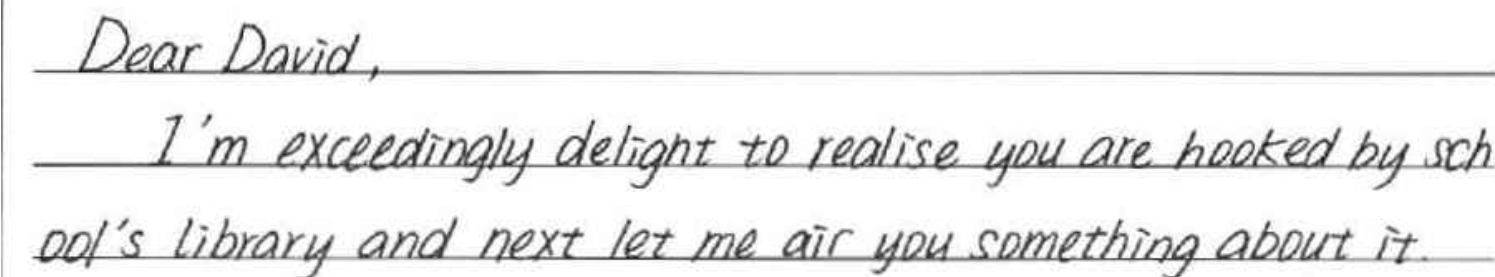 Dear David,
I'm exceedingly delight to realise you are hooked by sch
ool's library and next let me air you something about it.